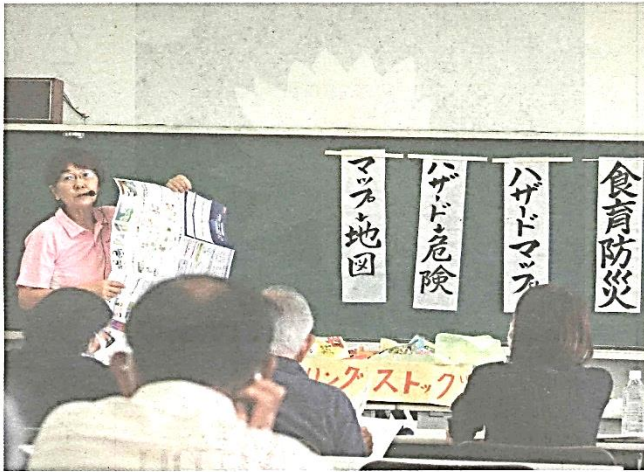 食育防災
ハザードマップ
ハザード↓危険
マップ↓地図
リング ストック